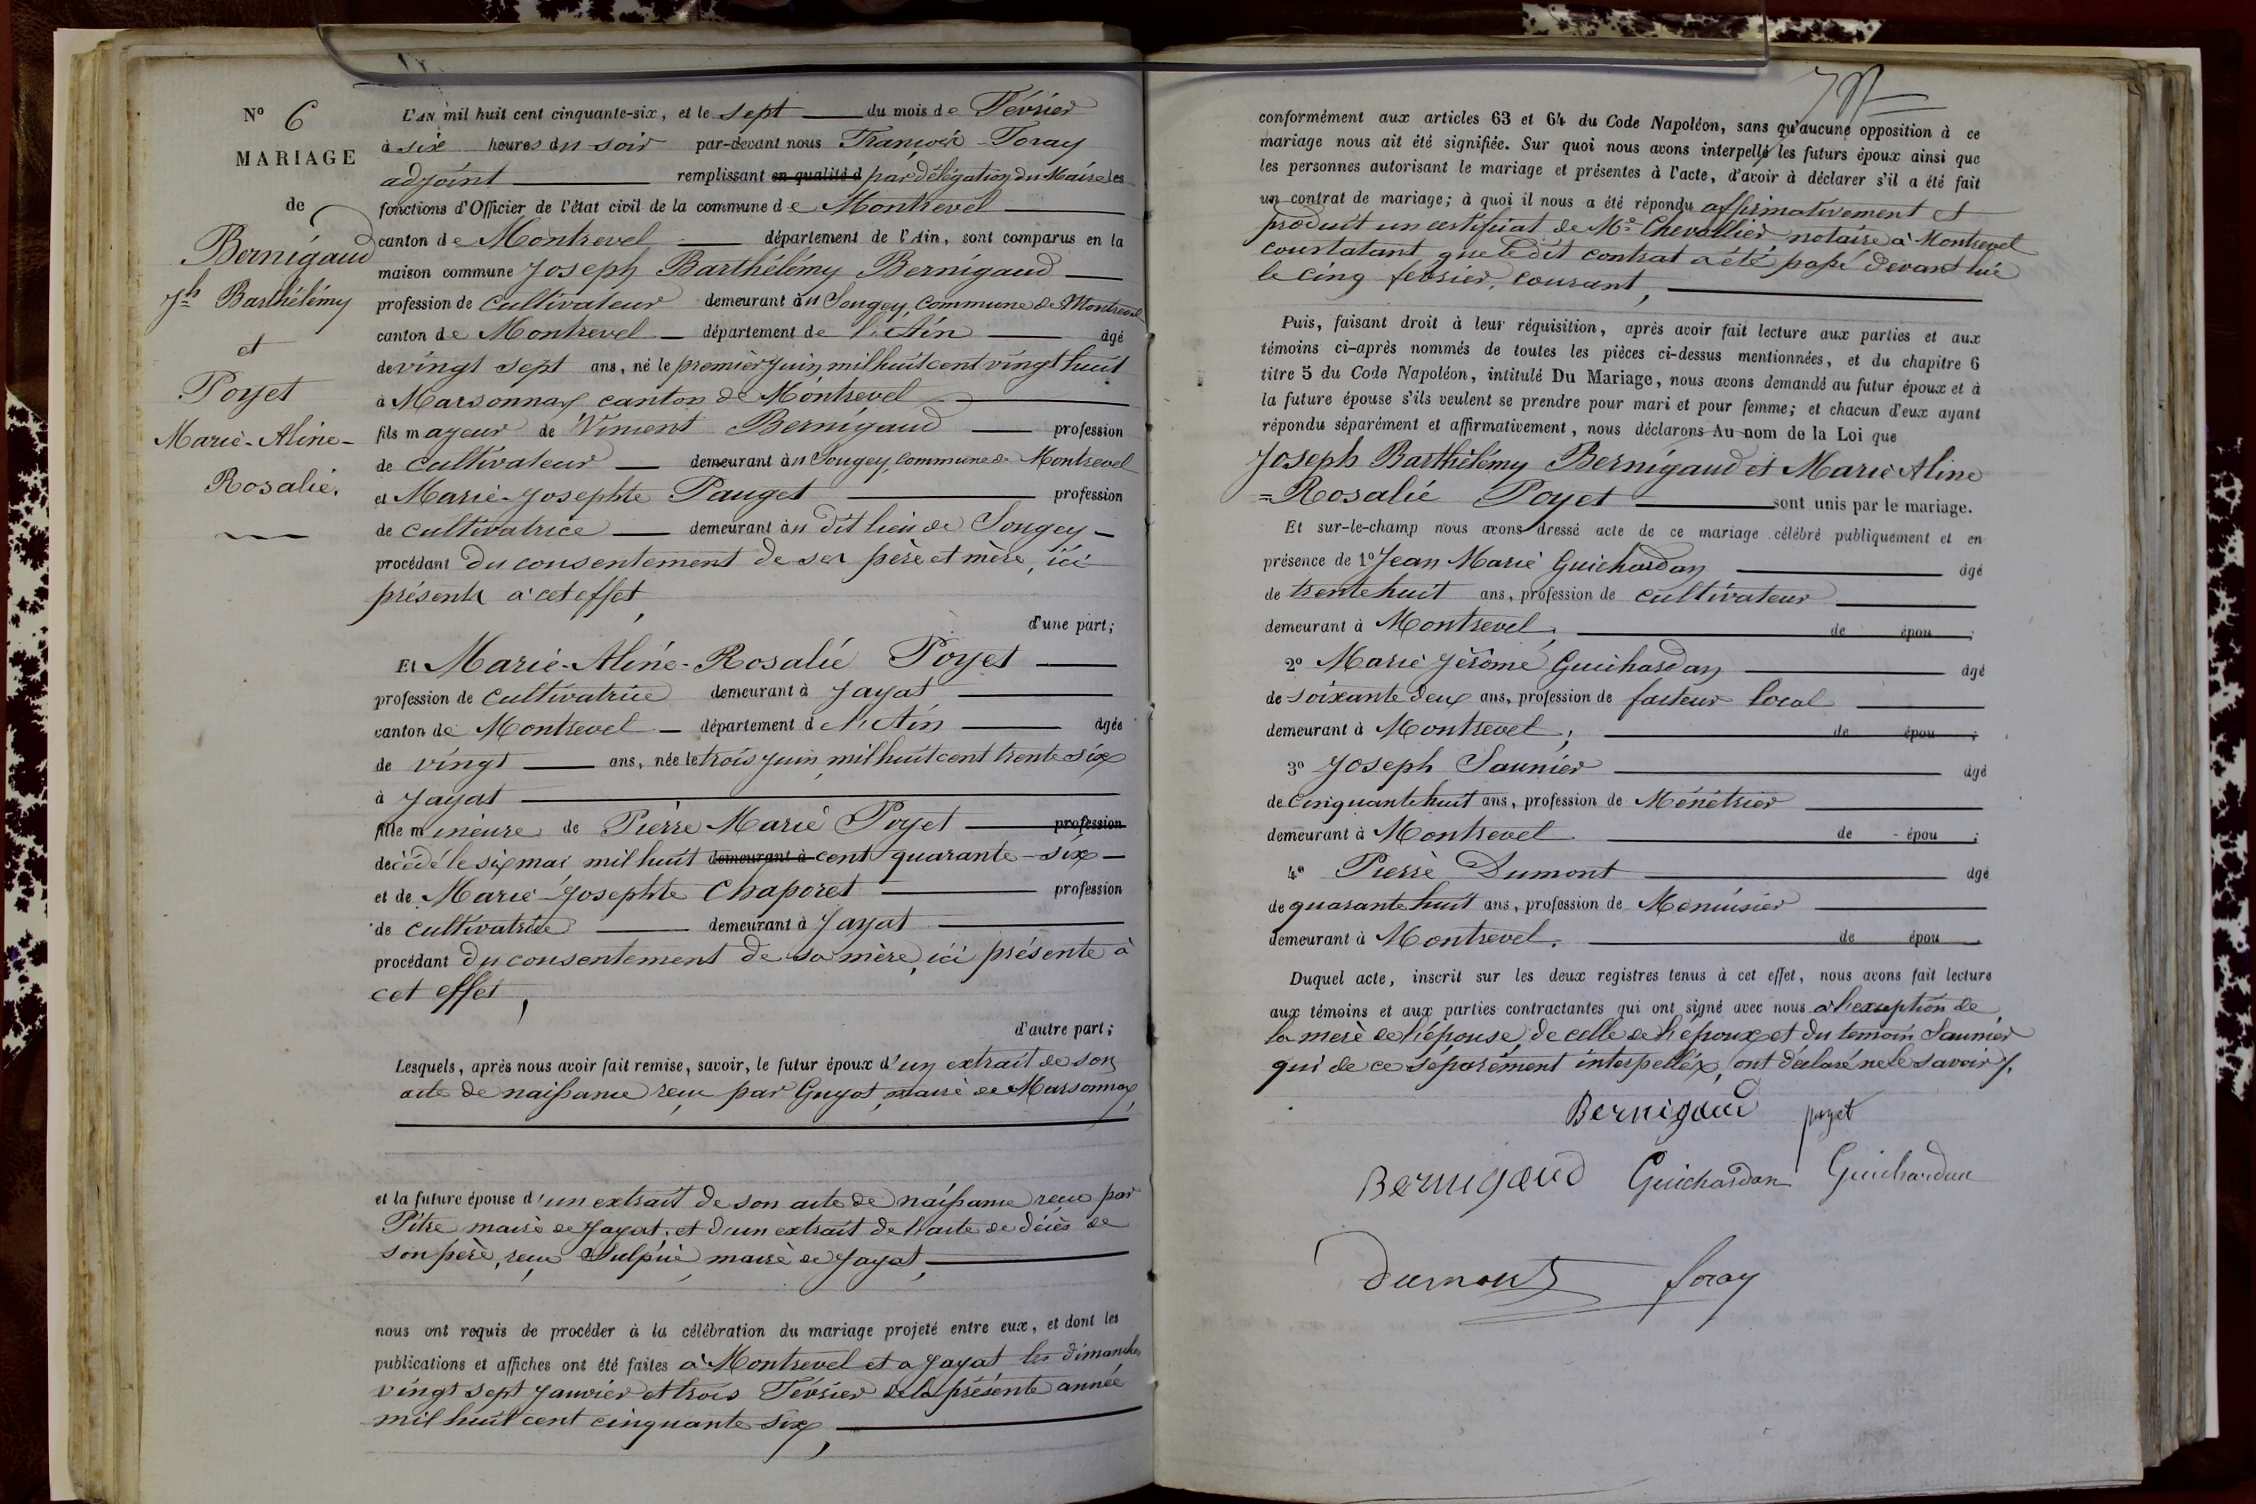 N° 6
MARIAGE
de
Bernigaud
Jh Barthélémy
et
Poyet
Marie-Aline-
Rosalie.
L'AN mil huit cent cinquante-six, et le sept du mois de Février
à six heures du soir par-devant nous François Foray
adjoint remplissant en qualité d par délégation du Maire les
fonctions d'Officier de l'état civil de la commune de Montrevel
canton de Montrevel département de l'Ain, sont comparus en la
maison commune Joseph Barthélémy Bernigaud
profession de cultivateur demeurant au Sougey, commune de Montrevel
canton de Montrevel département de l'Ain âgé
de vingt sept ans, né le premier juin mil huit cent vingt huit
à Marsonnay canton de Montrevel
fils mayeur de Vincent Bernigaud profession
de cultivateur demeurant au Sougey, commune de Montrevel
et Marie-Josephte Pauget profession
de cultivatrice demeurant au dit lieu de Sougey
procédant du consentement de ses père et mère, ici
présents à cet effet,
d'une part;
Et Marie-Aline-Rosalie Poyet
profession de cultivatrice demeurant à Jayat
canton de Montrevel département de l'Ain âgée
de vingt ans, née le trois juin mil huit cent trente six
à Jayat
fille mineure de Pierre Marie Poyet profession
décédé le six mai mil huit demeurant à cent quarante-six
et de Marie Josephte Chaporet profession
de cultivatrice demeurant à Jayat
procédant du consentement de sa mère, ici présente à
cet effet,
d'autre part;
Lesquels, après nous avoir fait remise, savoir, le futur époux d'un extrait de son
acte de naissance reçu par Guyot, maire de Marsonnay,
et la future épouse d'un extrait de son acte de naissance reçu par
Pitre maire de Jayat, et d'un extrait de l'acte de décès de
son père, reçu Sulpice, maire de Jayat,
nous ont requis de procéder à la célébration du mariage projeté entre eux, et dont les
publications et affiches ont été faites à Montrevel et a Jayat les dimanches
vingt sept Janvier et trois Février de la présente année
mil huit cent cinquante six,
conformément aux articles 63 et 64 du Code Napoléon, sans qu'aucune opposition à ce
mariage nous ait été signifiée. Sur quoi nous avons interpellé les futurs époux ainsi que
les personnes autorisant le mariage et présentes à l'acte, d'avoir à déclarer s'il a été fait
un contrat de mariage; à quoi il nous a été répondu affirmativement et
produit un certificat de Me Chevallier notaire à Montrevel
constatant que ledit contrat a été passé devant lui
le cinq février, courant,
Puis, faisant droit à leur réquisition, après avoir fait lecture aux parties et aux
témoins ci-après nommés de toutes les pièces ci-dessus mentionnées, et du chapitre 6
titre 5 du Code Napoléon, intitulé Du Mariage, nous avons demandé au futur époux et à
la future épouse s'ils veulent se prendre pour mari et pour femme; et chacun d'eux ayant
répondu séparément et affirmativement, nous déclarons Au nom de la Loi que
Joseph Barthélémy Bernigaud et Marie Aline
=Rosalie Poyet sont unis par le mariage.
Et sur-le-champ nous avons dressé acte de ce mariage célébré publiquement et en
présence de 1° Jean Marie Guichardan âgé
de trente huit ans, profession de cultivateur
demeurant à Montrevel; de épou ;
2° Marie Jérôme Guichardan âgé
de soixante deux ans, profession de facteur local
demeurant à Montrevel; de épou ;
3° Joseph Saunier âgé
de cinquante huit ans, profession de Ménétrier
demeurant à Montrevel de épou ;
4° Pierre Dumont âgé
de quarante huit ans, profession de Menuisier
demeurant à Montrevel. de épou .
Duquel acte, inscrit sur les deux registres tenus à cet effet, nous avons fait lecture
aux témoins et aux parties contractantes qui ont signé avec nous à l'exception de
la mère de l'épouse, de celle de l'époux et du temoin Saunier
qui de ce séparément interpellés, ont déclaré ne le savoir.
Bernigaud poyet
Bernigaud Guichardan Guichardan
Dumont foray